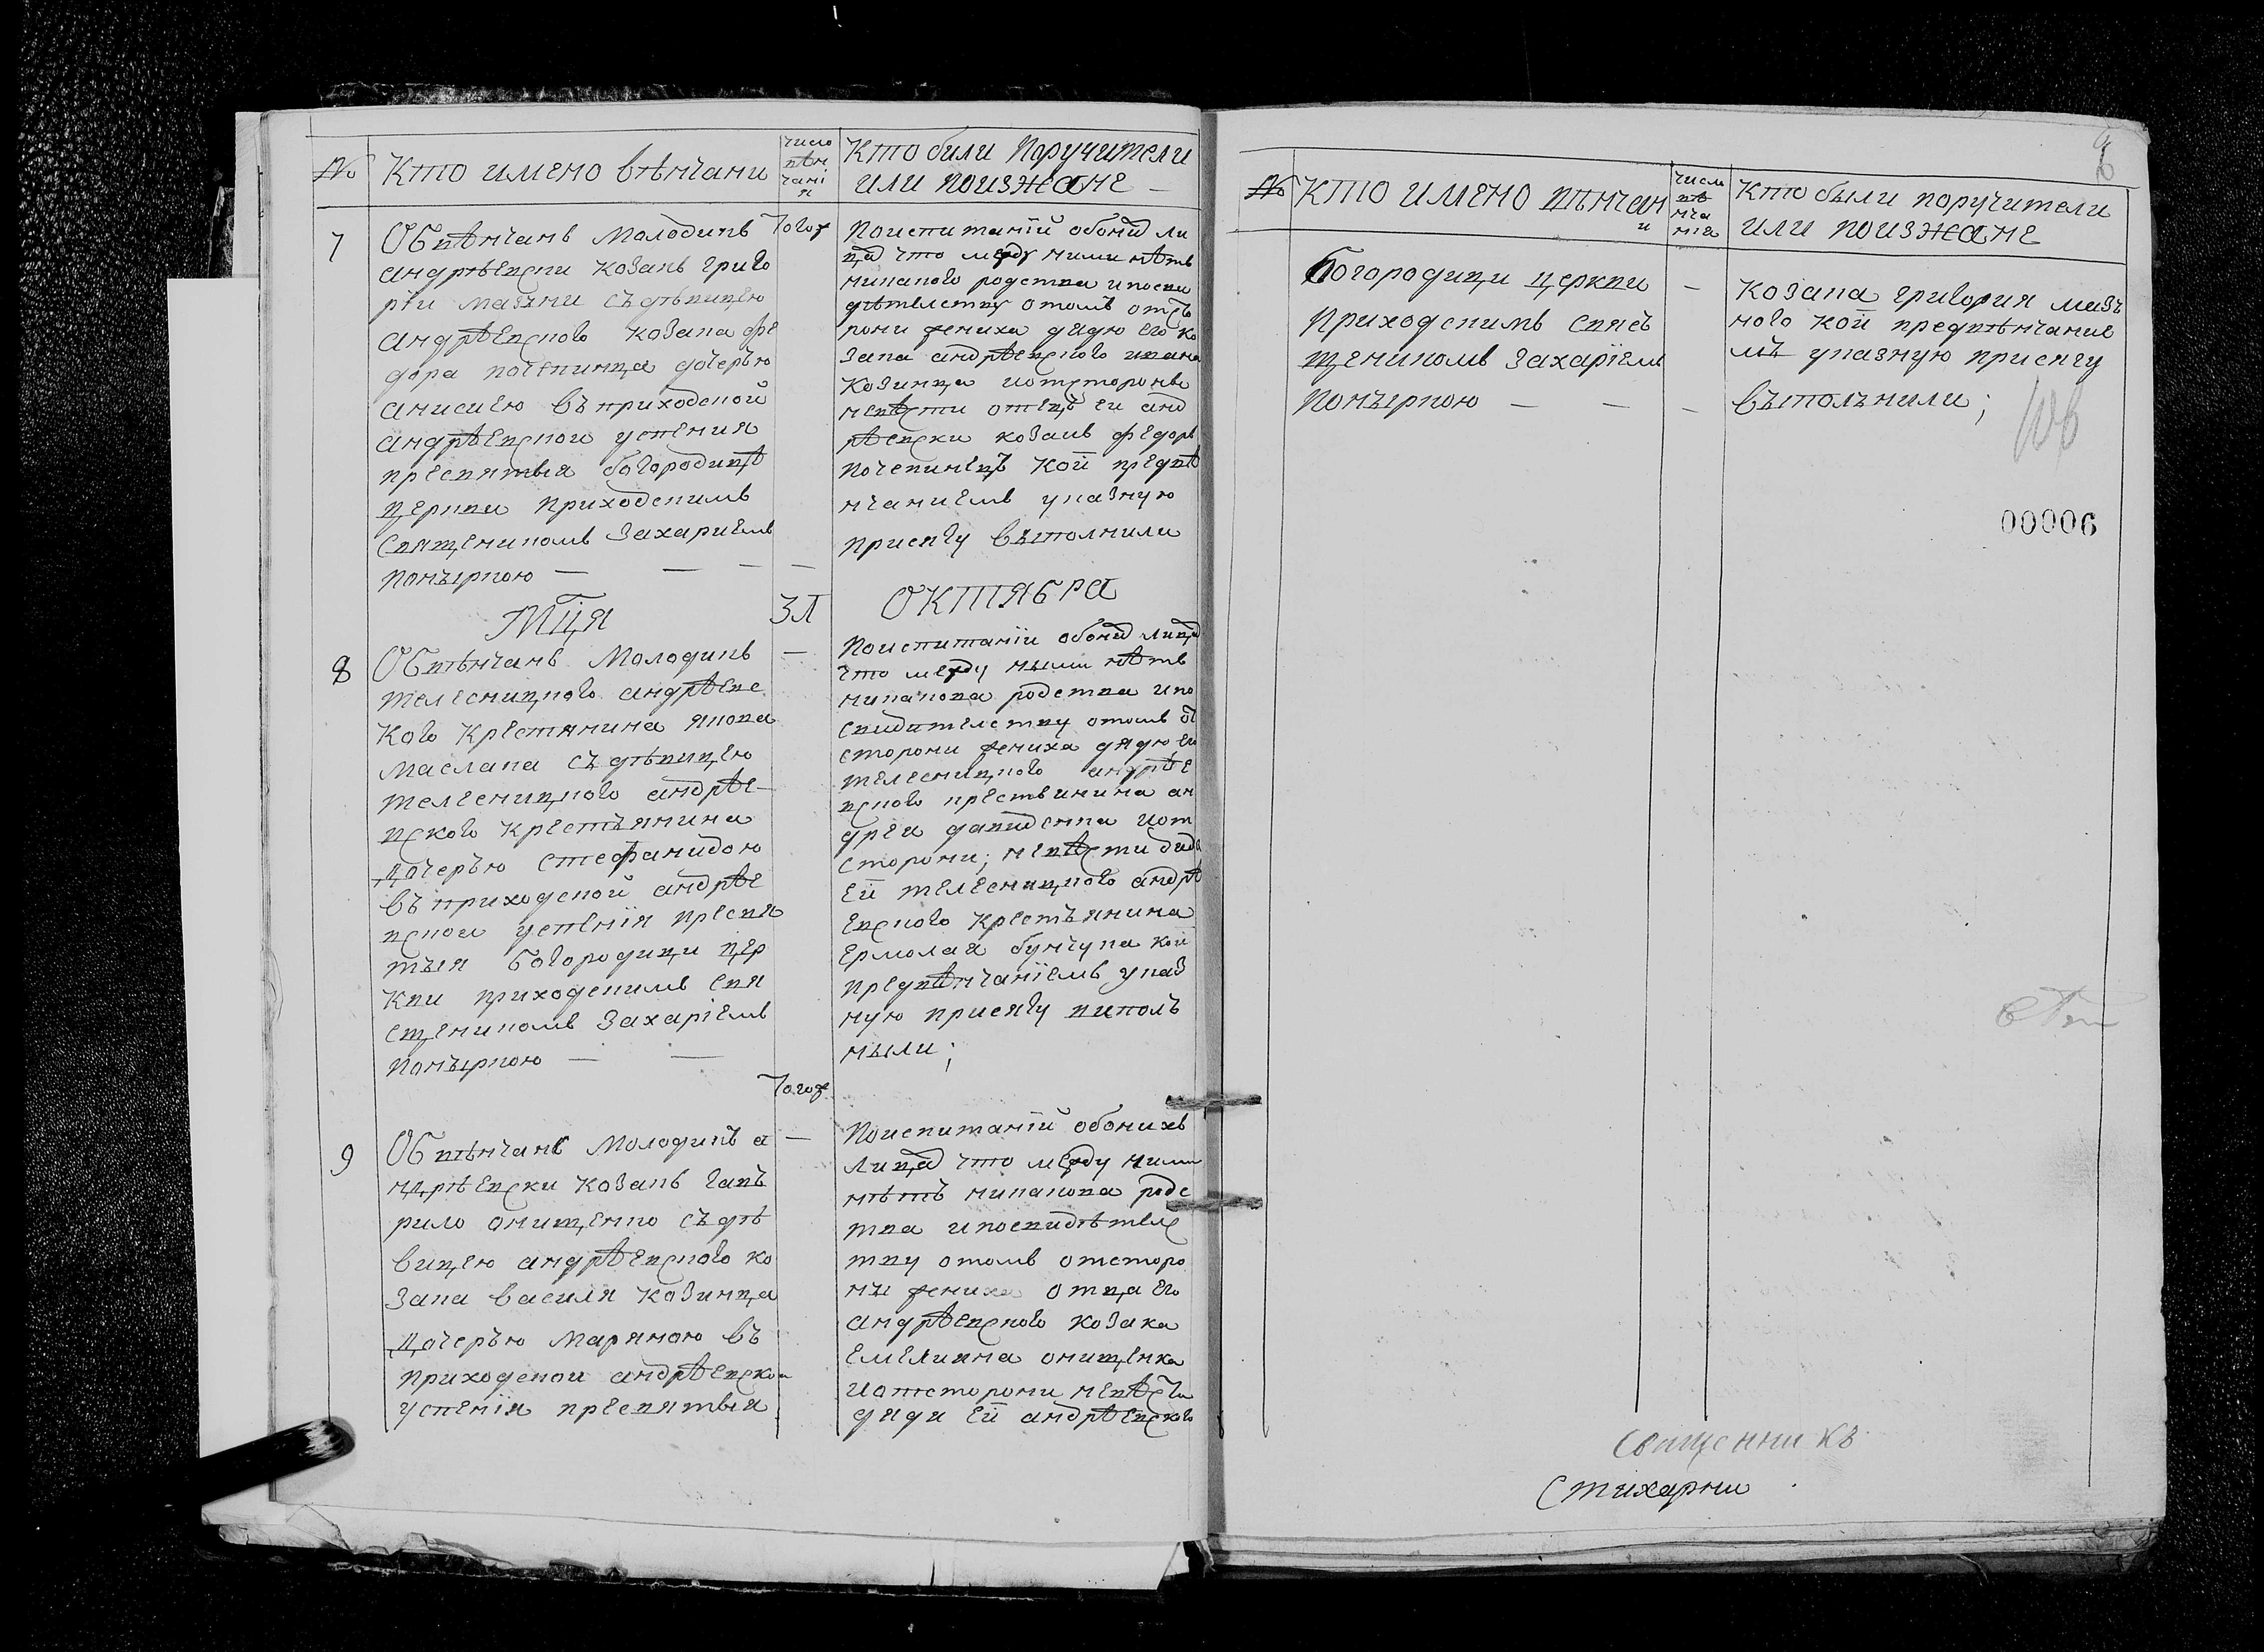 №
Кто имено вѣнчани
число
вѣн
чані
я
Кто били Поручители
или поизжане
7
Обвѣнчанъ Молодикъ
андрѣевски козакъ григо
рїи мазъни съ дѣвицею
андрѣевского козака фе
дора почепинца дочерью
анисиею въ приходской
андрѣевской успения
пресвятыя богородицѣ
церкви приходскимъ
священикомъ Захариемъ
Того ж
Поиспитанїи обоихъ ли
цъ что между ними нѣтъ
никакого родства и посви
дѣтелству отомъ отсто
рони жениха дядю его ко
зака андрѣевского ивана
козинца и отстороны
невѣсти отецъ еи анд
рѣевски козакъ федоръ
почепинецъ кой предвѣ
нчаниемъ указную
присягу выполнили
Мця
ЗЛ
октября
8
Обвѣнчанъ Молодикъ
телесницкого андрѣевс
кого крестянина якова
маслака съ дѣвицею
телесницкого андрѣе
вского крестьянина
дочерью стефанидою
въ приходской андрѣе
вской успенїя пресвя
тыя богородици цер
кви приходскимъ свя
щеникомъ Захарїемъ
Поиспитанїи обоихъ лицъ
что между ными нѣтъ
никакова родства и по
свидителству отомъ отъ
сторони жениха дядю его
телесницкого андрѣе
вского крестьянина ан
дрея давиденка и от
сторони; невѣсти дядя
ей телесницкого андрѣ
евского крестьянина
ермолая бунчука кои
предвѣнчанїемъ указ
ную присягу виполъ
ныли;
Того ж
9
Обвѣнчанъ Молодикъ а
ндрѣевски козакъ гавъ
рило онищенко съ дѣ
вицею андрѣевского ко
зака василя козинца
дочерью Мариною въ
приходской андрѣевской
успенїя пресвятыя
Поиспитанїи обоихъ
лицъ что между ними
нѣтъ никакова родс
тва и посвидѣтелс
тву отомъ отсторо
ны жениха отца его
андрѣевского козака
емелияна онищенка
и отсторони невѣсти
дяди ей андрѣевского
№
кто имено вѣнчан
и
число
вѣ
нча
ния
Кто были поручители
или поизжане
Богородици церкви
приходскимъ свяс
щеникомъ Захарїемъ
козака григория мазъ
ного кой предвѣнчание
мъ указную присягу
выполънили;
00006
Священникъ